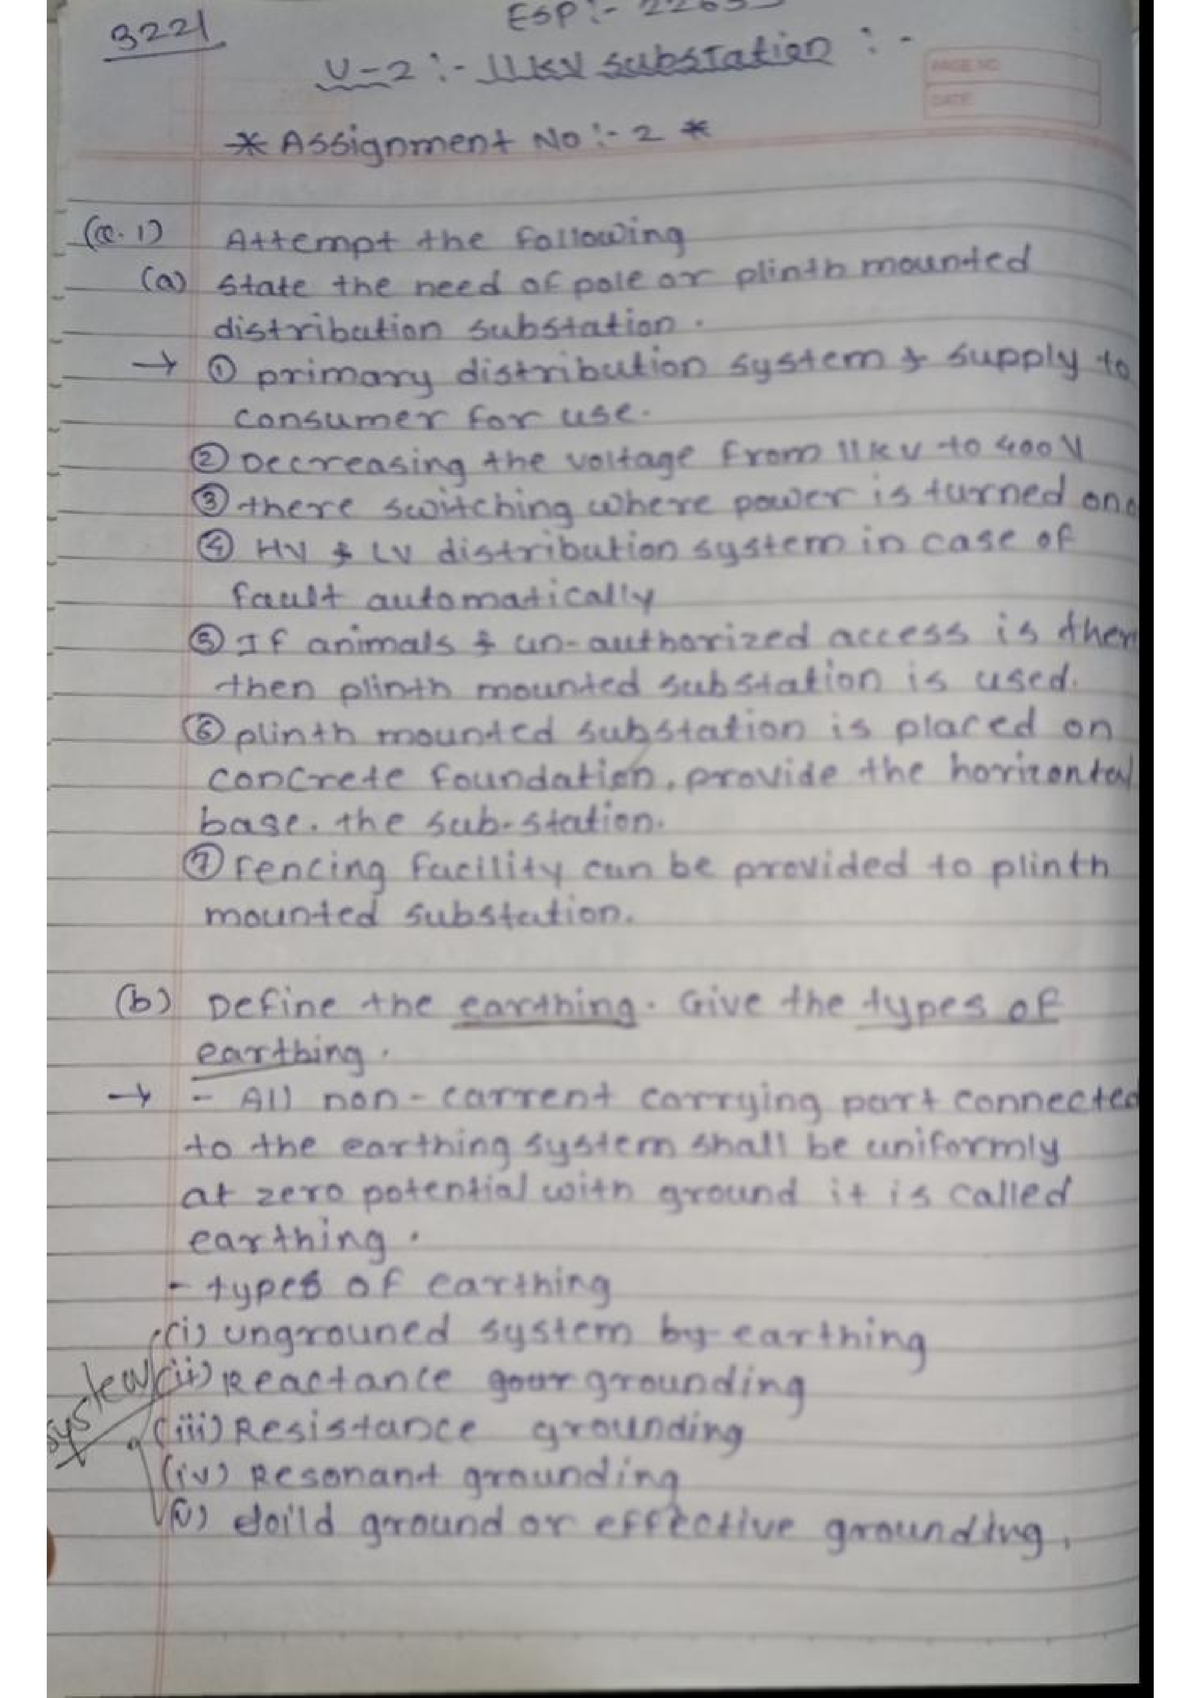 3221
ESP :-
U-2 :- 11KV Substation :-
PAGE NO
DATE
* Assignment No :- 2 *
(Q.1) Attempt the following
(a) State the need of pole or plinth mounted
distribution substation.
→ ① primary distribution system & supply to
consumer for use.
② Decreasing the voltage from 11KV to 400V
③ there switching where power is turned on
④ HV & LV distribution system in case of
fault automatically
⑤ If animals & un-authorized access is ther
then plinth mounted substation is used.
⑥ plinth mounted substation is placed on
concrete foundation, provide the horizontal
base. the sub-station.
⑦ Fencing facility can be provided to plinth
mounted substation.
(b) Define the earthing. Give the types of
earthing.
→ - All non-current carrying part connected
to the earthing system shall be uniformly
at zero potential with ground it is called
earthing.
- types of earthing
(i) ungrouned system by earthing
(ii) Reactance grounding
system
(iii) Resistance grounding
(iv) Resonant grounding
(v) ground or effective grounding.